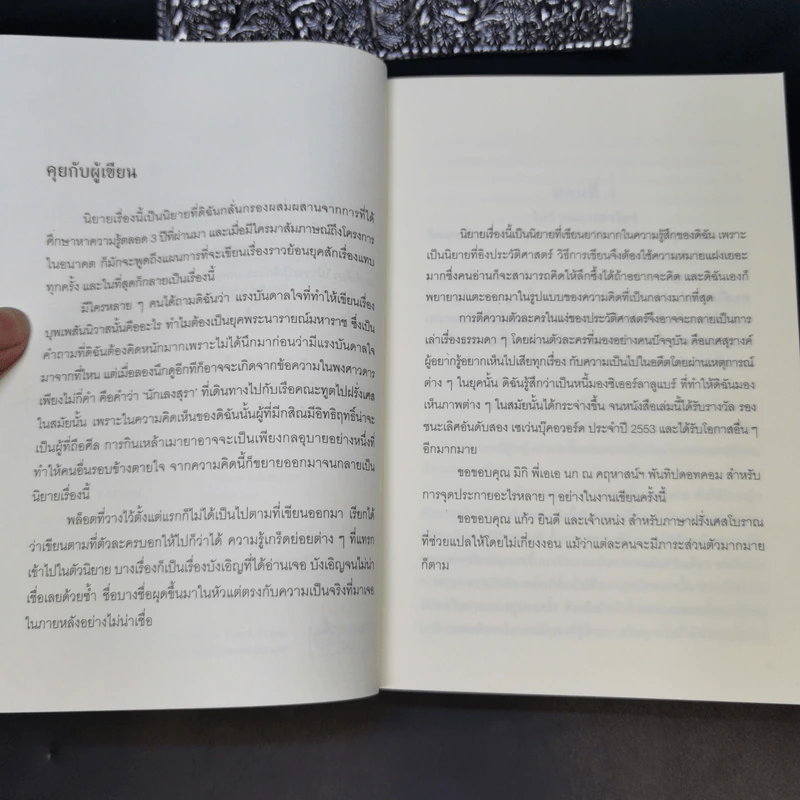 คุยกับผู้เขียน
นิยายเรื่องนี้เป็นนิยายที่ดิฉันกลั่นกรองผสมผสานจากการที่ได้
ศึกษาหาความรู้ตลอด 3 ปีที่ผ่านมา และเมื่อมีใครมาสัมภาษณ์ถึงโครงการ
ในอนาคต ก็มักจะพูดถึงแผนการที่จะเขียนเรื่องราวย้อนยุคสักเรื่องแทบ
ทุกครั้ง และในที่สุดก็กลายเป็นเรื่องนี้
มีใครหลาย ๆ คนได้ถามดิฉันว่า แรงบันดาลใจที่ทำให้เขียนเรื่อง
บุพเพสันนิวาสนั้นคืออะไร ทำไมต้องเป็นยุคพระนารายณ์มหาราช ซึ่งเป็น
คำถามที่ดิฉันต้องคิดหนักมากเพราะไม่ได้นึกมาก่อนว่ามีแรงบันดาลใจ
มาจากที่ไหน แต่เมื่อลองนึกดูอีกทีก็อาจจะเกิดจากข้อความในพงศาวดาร
เพียงไม่กี่คำ คือคำว่า 'นักเลงสุรา' ที่เดินทางไปกับเรือคณะทูตไปฝรั่งเศส
ในสมัยนั้น เพราะในความคิดเห็นของดิฉันนั้นผู้ที่มีกสิณมีอิทธิฤทธิ์น่าจะ
เป็นผู้ที่ถือศีล การกินเหล้าเมายาอาจจะเป็นเพียงกลอุบายอย่างหนึ่งที่
ทำให้คนอื่นรอบข้างตายใจ จากความคิดนี้ก็ขยายออกมาจนกลายเป็น
นิยายเรื่องนี้
พล็อตที่วางไว้ตั้งแต่แรกก็ไม่ได้เป็นไปตามที่เขียนออกมา เรียกได้
ว่าเขียนตามที่ตัวละครบอกให้ไปก็ว่าได้ ความรู้เกร็ดย่อยต่าง ๆ ที่แทรก
เข้าไปในตัวนิยาย บางเรื่องก็เป็นเรื่องบังเอิญที่ได้อ่านเจอ บังเอิญจนไม่น่า
เชื่อเลยด้วยซ้ำ ชื่อบางชื่อผุดขึ้นมาในหัวแต่ตรงกับความเป็นจริงที่มาเจอ
ในภายหลังอย่างไม่น่าเชื่อ
นิยายเรื่องนี้เป็นนิยายที่เขียนยากมากในความรู้สึกของดิฉัน เพราะ
เป็นนิยายที่อิงประวัติศาสตร์ วิธีการเขียนจึงต้องใช้ความหมายแฝงเยอะ
มากซึ่งคนอ่านก็จะสามารถคิดให้ลึกซึ้งได้ถ้าอยากจะคิด และดิฉันเองก็
พยายามแตะออกมาในรูปแบบของความคิดที่เป็นกลางมากที่สุด
การตีความตัวละครในแง่ของประวัติศาสตร์จึงอาจจะกลายเป็นการ
เล่าเรื่องธรรมดา ๆ โดยผ่านตัวละครที่มองอย่างคนปัจจุบัน คือเกศสุรางค์
ผู้อยากรู้อยากเห็นไปเสียทุกเรื่อง กับความเป็นไปในอดีตโดยผ่านเหตุการณ์
ต่าง ๆ ในยุคนั้น ดิฉันรู้สึกว่าเป็นหนี้มองซิเออร์ลาลูแบร์ ที่ทำให้ดิฉันมอง
เห็นภาพต่าง ๆ ในสมัยนั้นได้กระจ่างขึ้น จนหนังสือเล่มนี้ได้รับรางวัล รอง
ชนะเลิศอันดับสอง เซเว่นบุ๊คอวอร์ด ประจำปี 2553 และได้รับโอกาสอื่น ๆ
อีกมากมาย
ขอขอบคุณ มิกิ พี่เอเอ นก ณ คฤหาสน์ฯ พันทิปดอทคอม สำหรับ
การจุดประกายอะไรหลาย ๆ อย่างในงานเขียนครั้งนี้
ขอขอบคุณ แก้ว ยินดี และเจ้าเหน่ง สำหรับภาษาฝรั่งเศสโบราณ
ที่ช่วยแปลให้โดยไม่เกี่ยงงอน แม้ว่าแต่ละคนจะมีภาระส่วนตัวมากมาย
ก็ตาม